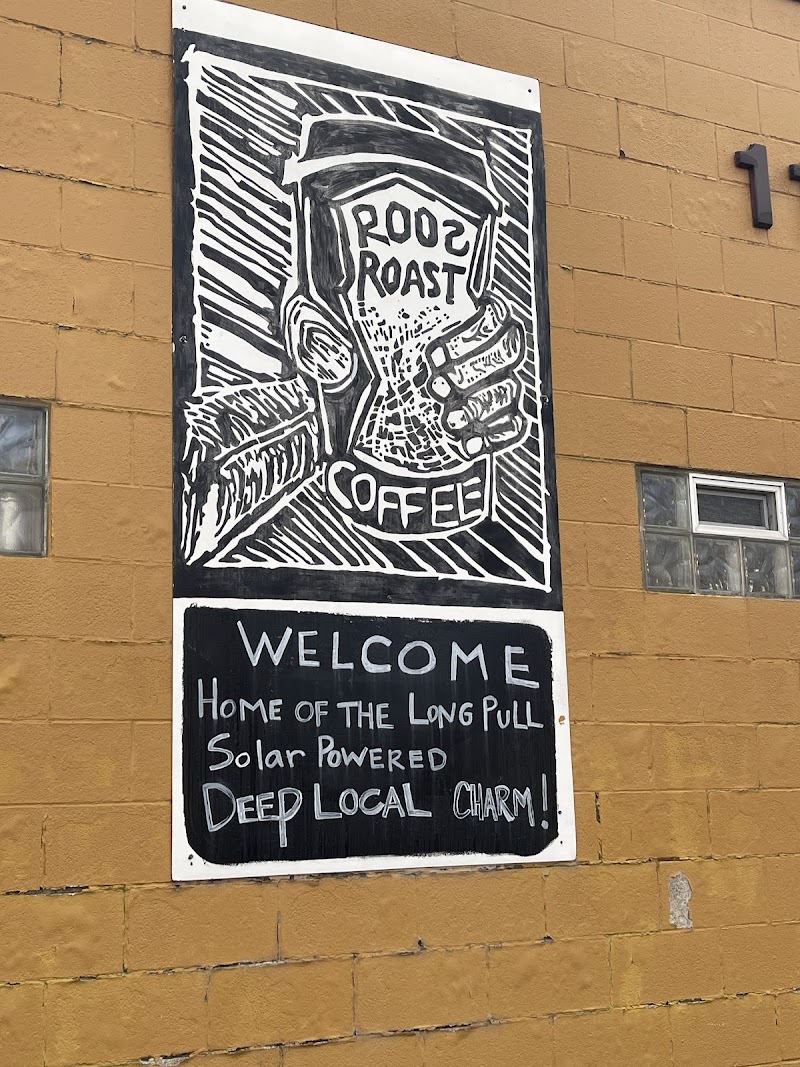 ROOS
ROAST
COFFEE
1
WELCOME
HOME OF THE LONG PULL
Solar POWERED
DEEP LOCAL CHARM!